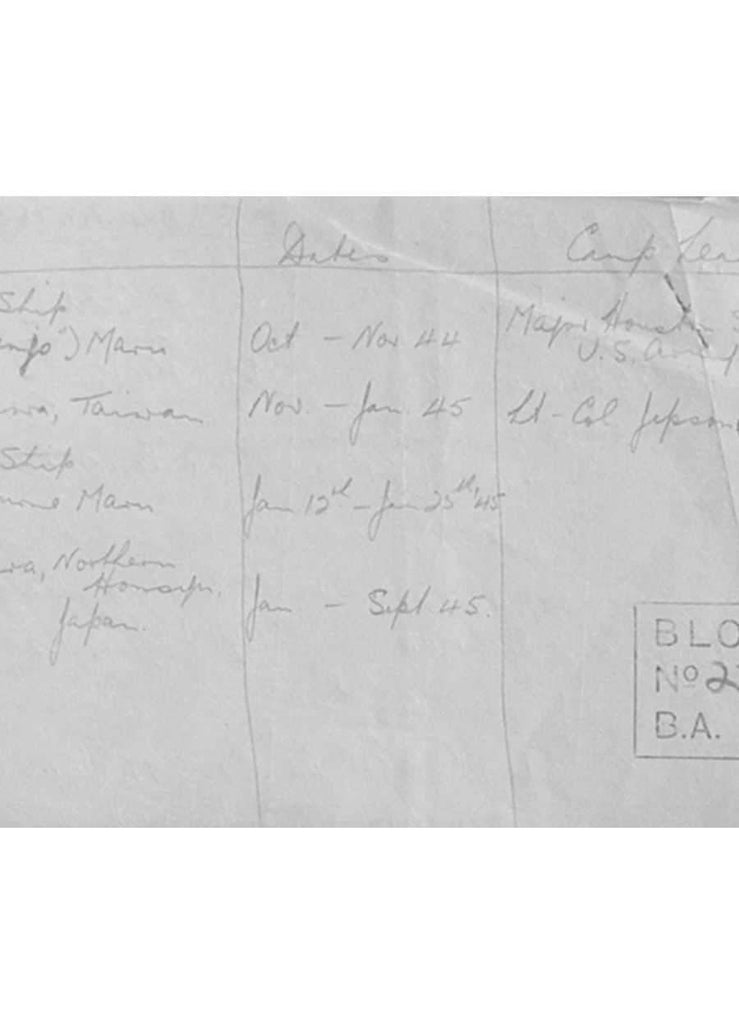 Dates Camp Lea
Ship
njo") Maru Oct - Nov 44 Major Houston
U.S. Army
wa, Taiwan Nov. - Jan. 45 Lt-Col Jepson
Ship
Maru Jan 12th - Jan 25th '45
wa, Northern
Honshu,
Japan. Jan - Sept 45.
BLO
No 2
B.A.